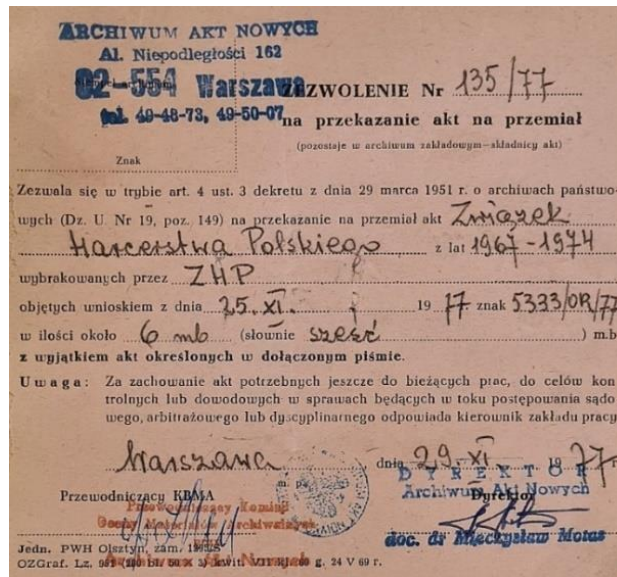 ARCHIWUM AKT NOWYCH
Al. Niepodległości 162
02-554 Warszawa
tel. 49-48-73, 49-50-07
ZEZWOLENIE Nr 135/77
na przekazanie akt na przemiał
(pozostaje w archiwum zakładowym-składnicy akt)
Znak
Zezwala się w trybie art. 4 ust. 3 dekretu z dnia 29 marca 1951 r. o archiwach państwo-
wych (Dz. U. Nr 19, poz. 149) na przekazanie na przemiał akt Związek
Harcerstwa Polskiego z lat 1967-1974
wybrakowanych przez ZHP
objętych wnioskiem z dnia 25. XI. 1977. znak 5333/OR/77
w ilości około 6 mb (słownie sześć) m.b
z wyjątkiem akt określonych w dołączonym piśmie.
Uwaga: Za zachowanie akt potrzebnych jeszcze do bieżących prac, do celów kon
trolnych lub dowodowych w sprawach będących w toku postępowania sądo
wego, arbitrażowego lub dyscyplinarnego odpowiada kierownik zakładu pracy
Warszawa dnia 29. XI 1977 r.
m. p.
DYREKTOR
Przewodniczący KBMA
Archiwum Akt Nowych
Dyrektor
Przewodniczący Komisji
Oceny Materiałów Archiwalnych
doc. dr Mieczysław Motas
Jedn. PWH Olsztyn, zam.
OZGraf. Lz. g. 24 V 69 r.